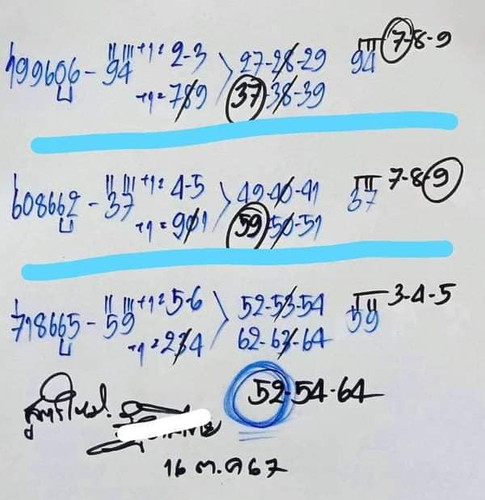 199606 - 94 +1 = 2-3 27-28-29 94 7-8-9
-1 = 789 37-38-39
608662 - 37 +1 = 4-5 49-40-41 37 7-8-9
-1 = 901 59-50-51
718665 - 59 +1 = 5-6 52-53-54 59 3-4-5
-1 = 234 62-63-64
52-54-64
16 ต.ค 67